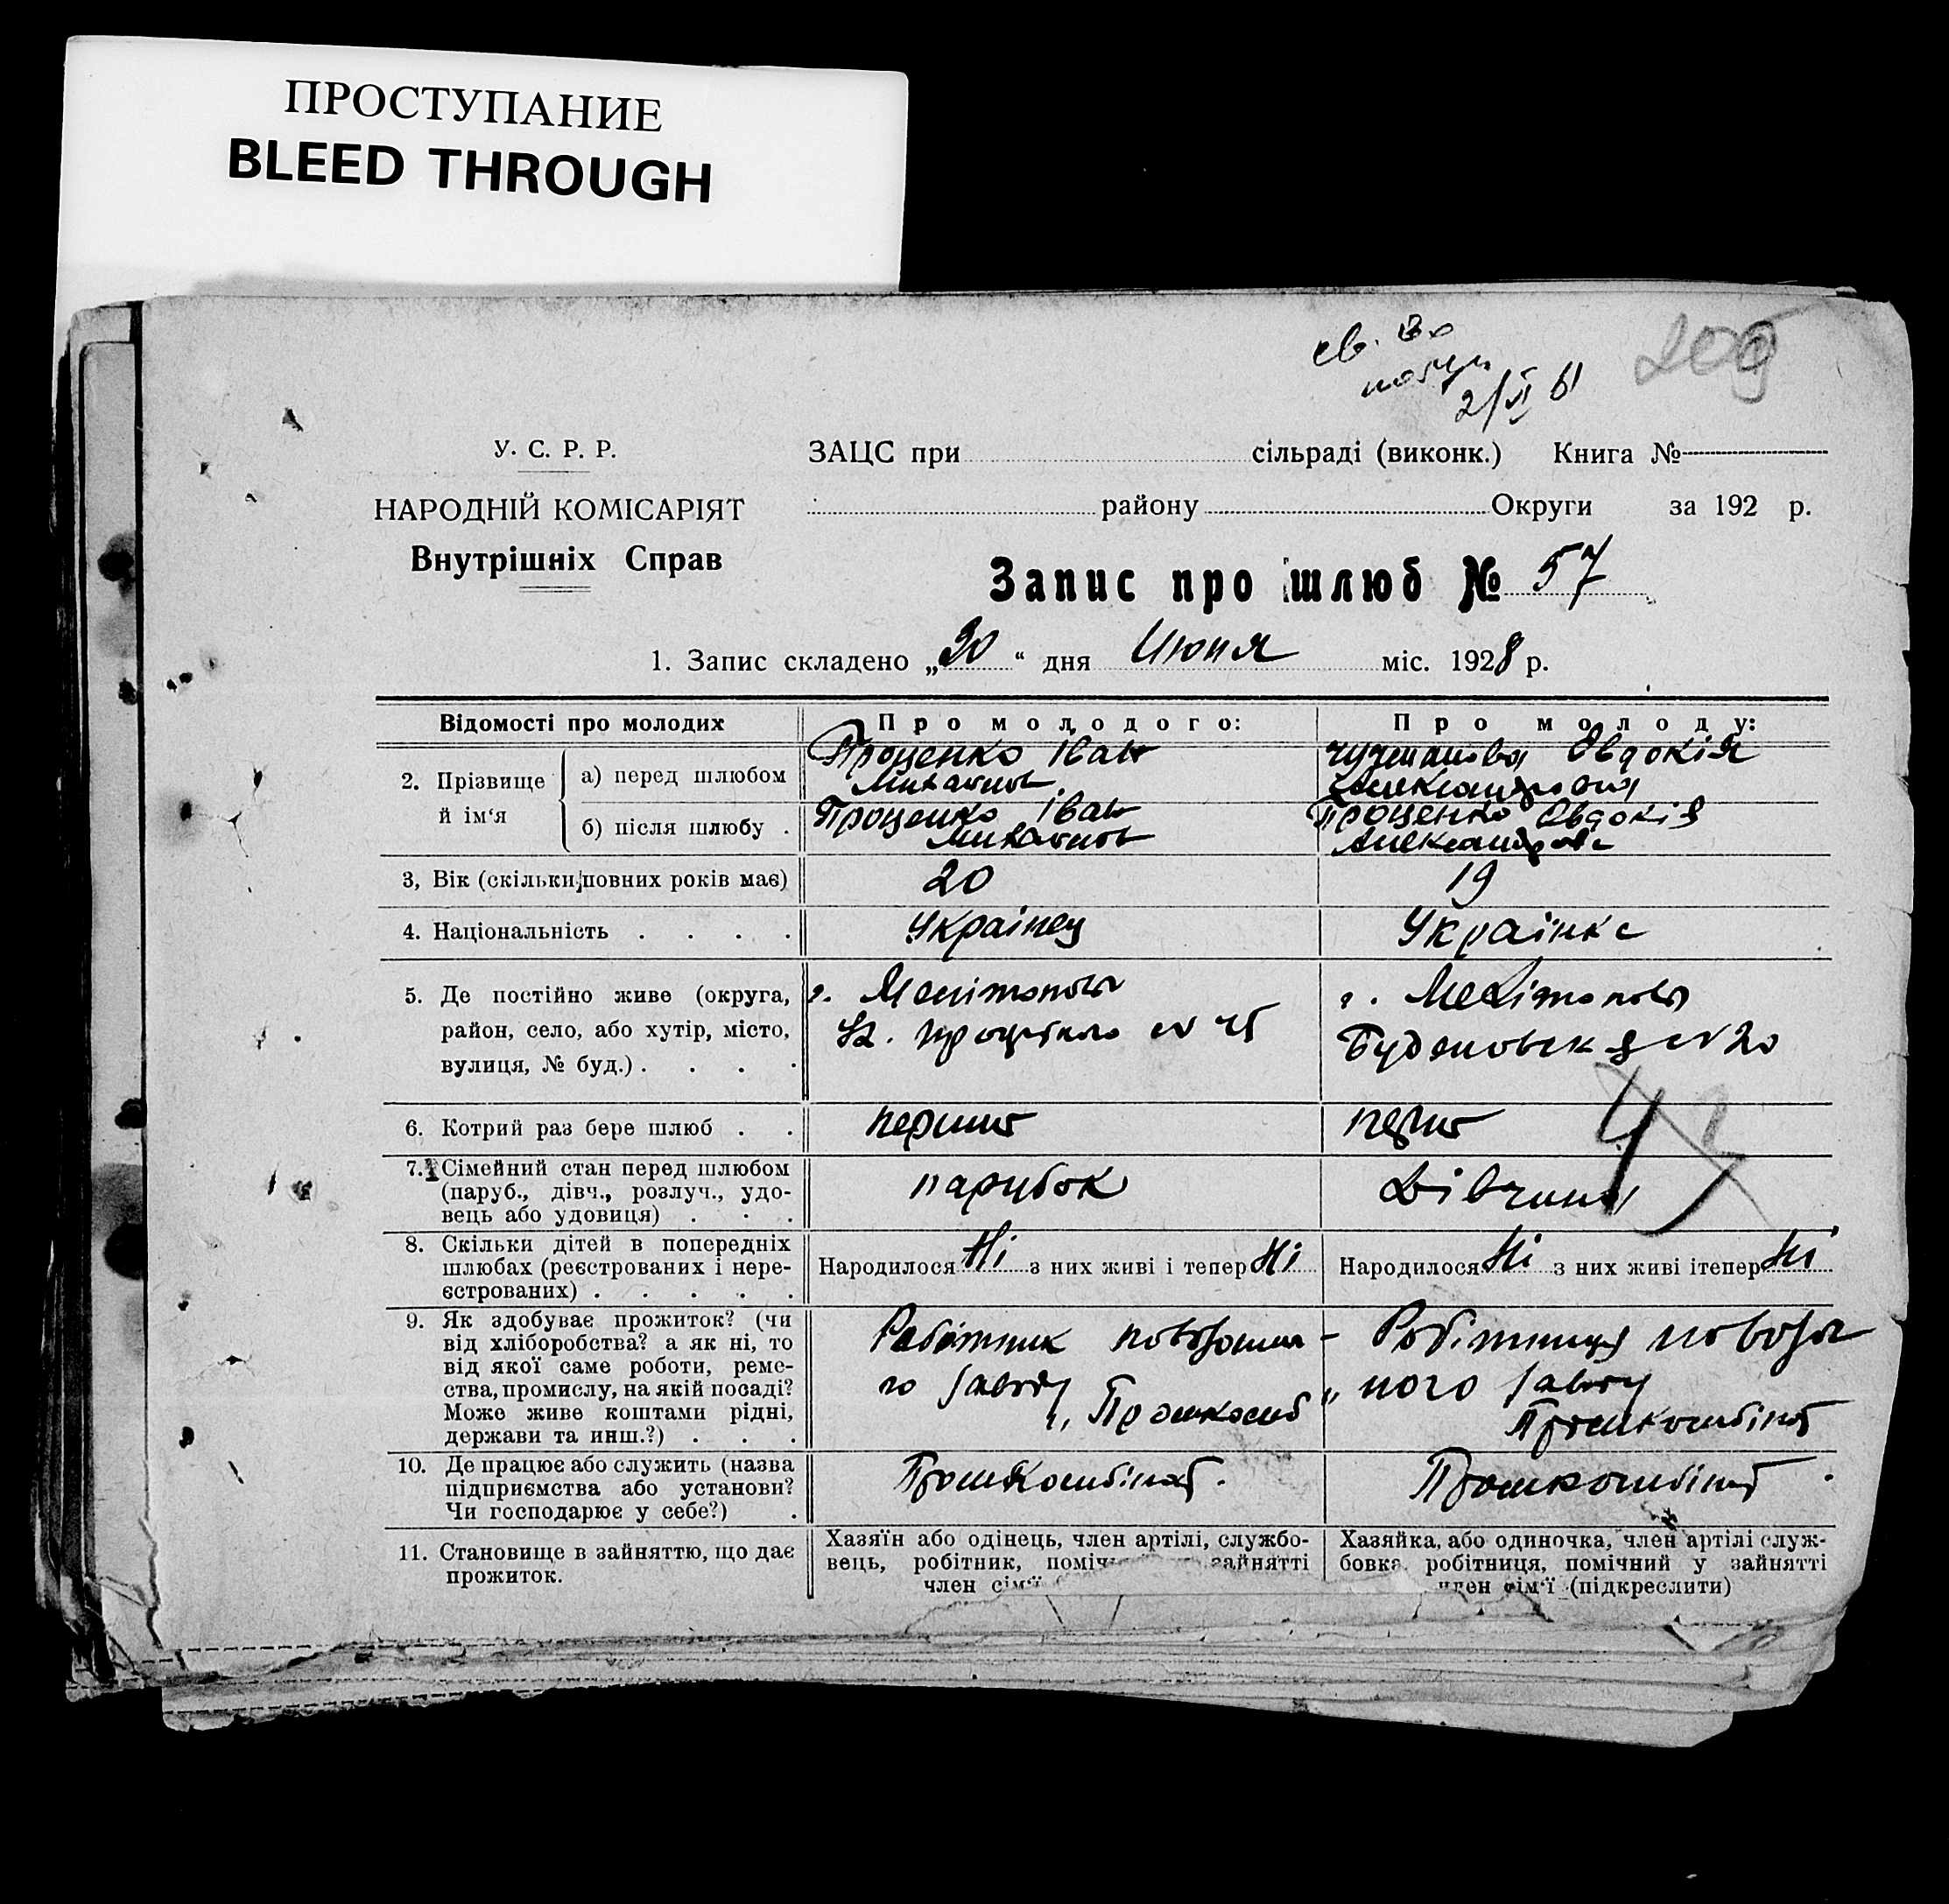 ПРОСТУПАНИЕ
BLEED THROUGH
св.
2/VI 61
209
У. С. Р. Р.
НАРОДНІЙ КОМІСАРІЯТ
Внутрішніх Справ
ЗАЦС при сільраді (виконк.) Книга №
району Округи за 192 р.
Запис про шлюб № 57
1. Запис складено „30“ дня Июня міс. 1928 р.
Відомості про молодих
Про молодого:
Про молоду:
2. Прізвище й ім‘я
а) перед шлюбом
Проценко Іван
Михайлов
Евдокія
б) після шлюбу .
Проценко Іван
Михайлов
Проценко Евдокія
Александров
3, Вік (скільки повних років має)
20
19
4. Національність . . . .
Українец
Українка
5. Де постійно живе (округа,
район, село, або хутір, місто,
вулиця, № буд.) . . . .
г. Мелітополь
г. Мелітополь
Буденовская № 20
6. Котрий раз бере шлюб . .
перший
перш
7. Сімейний стан перед шлюбом
(паруб., дівч., розлуч., удо-
вець або удовиця) . . .
парубок
Дівчина
8. Скільки дітей в попередніх
шлюбах (реєстрованих і нере-
єстрованих) . . . . .
Народилося Ні з них живі і тепер Ні
Народилося Ні з них живі ітепер Ні
9. Як здобуває прожиток? (чи
від хліборобства? а як ні, то
від якої саме роботи, реме-
ства, промислу, на якій посаді?
Може живе коштами рідні,
держави та инш.?) . . .
Робітник
го заводу
Робітниця
ного заводу
Промкомбінат
10. Де працює або служить (назва
підприємства або установи?
Чи господарює у себе?) .
Промкомбінат.
Промкомбінат.
11. Становище в зайняттю, що дає
прожиток.
Хазяїн або одінець, член артілі, службо-
вець, робітник, зайнятті
член
Хазяйка, або одиночка, член артілі служ-
бовка робітниця, помічний у зайнятті
член сім‘ї (підкреслити)